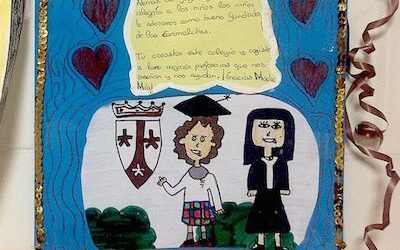 colegio a los niños los niños
te adoramos como buena fundadora
de las Carmelitas.
Tu creastes este colegio y cojiste
a los mejores profesores que nos
enseñan y nos ayudan. ¡Gracias Madre
Mia!